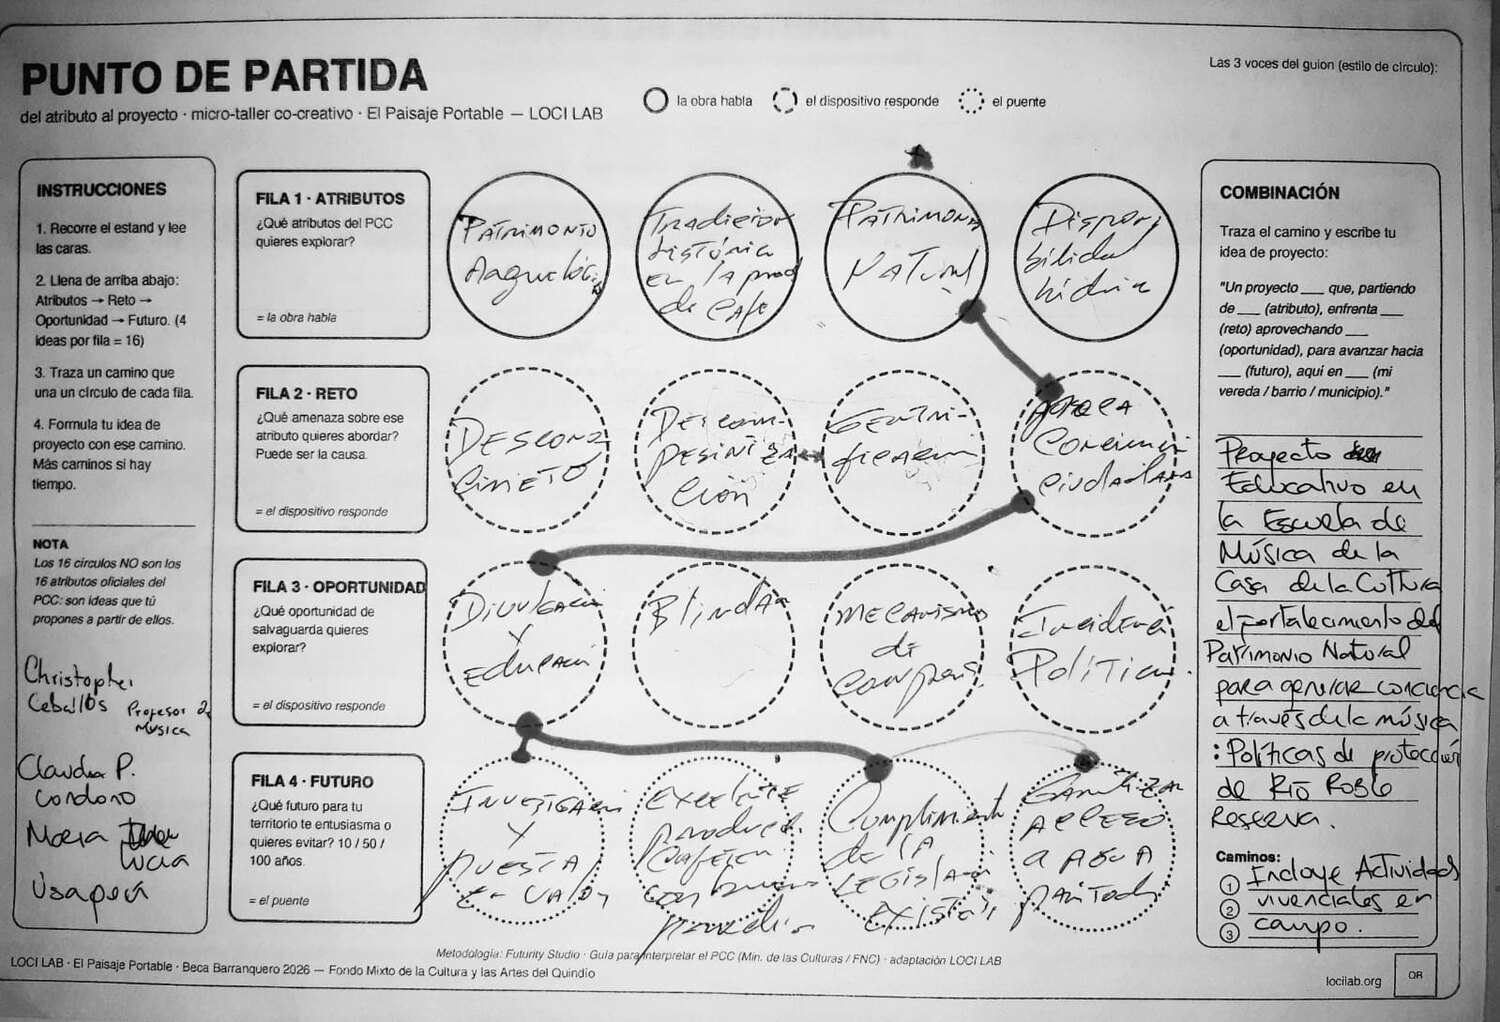 PUNTO DE PARTIDA
del atributo al proyecto · micro-taller co-creativo · El Paisaje Portable — LOCI LAB
la obra habla
el dispositivo responde
el puente
Las 3 voces del guion (estilo de círculo):
INSTRUCCIONES
1. Recorre el estand y lee
las caras.
2. Llena de arriba abajo:
Atributos → Reto →
Oportunidad → Futuro. (4
ideas por fila = 16)
3. Traza un camino que
una un círculo de cada fila.
4. Formula tu idea de
proyecto con ese camino.
Más caminos si hay
tiempo.
NOTA
Los 16 círculos NO son los
16 atributos oficiales del
PCC: son ideas que tú
propones a partir de ellos.
Christopher
Ceballos Profesor de
Música
Claudia P.
Londoño
Maria
Lucia
Usaquen
FILA 1 · ATRIBUTOS
¿Qué atributos del PCC
quieres explorar?
= la obra habla
PATRIMONIO
Arqueológico
Tradición
histórica
en la prod
de café
PATRIMONIO
NATURAL
Disponi
bilidad
hídrica
FILA 2 · RETO
¿Qué amenaza sobre ese
atributo quieres abordar?
Puede ser la causa.
= el dispositivo responde
DESCONO
CIMIENTO
DESCAM-
PESINIZA
CIÓN
GENTRI-
ficación
Conciencia
ciudadana
FILA 3 · OPORTUNIDAD
¿Qué oportunidad de
salvaguarda quieres
explorar?
= el dispositivo responde
Divulgación
Y
Educación
Blindar
MECANISMOS
de
Incidencia
Política
FILA 4 · FUTURO
¿Qué futuro para tu
territorio te entusiasma o
quieres evitar? 10 / 50 /
100 años.
= el puente
INVESTIGACIÓN
Y
PUESTA
EN VALOR
EXCELENTE
producción
Cafetera
con buenos
Cumplimiento
de LA
LEGISLACIÓN
EXISTENTE
GARANTIZAR
ACCESO
A AGUA
COMBINACIÓN
Traza el camino y escribe tu
idea de proyecto:
"Un proyecto ___ que, partiendo
de ___ (atributo), enfrenta ___
(reto) aprovechando ___
(oportunidad), para avanzar hacia
___ (futuro), aquí en ___ (mi
vereda / barrio / municipio)."
Proyecto
Educativo en
la Escuela de
Música de la
Casa de la Cultura
el fortalecimiento del
Patrimonio Natural
para generar conciencia
a través de la música
: Políticas de protección
de Río Roble
Reserva.
Caminos:
1 Incluye Actividades
2 vivenciales en
3 campo.
Metodología: Futurity Studio · Guía para interpretar el PCC (Min. de las Culturas / FNC) · adaptación LOCI LAB
LOCI LAB · El Paisaje Portable · Beca Barranquero 2026 — Fondo Mixto de la Cultura y las Artes del Quindío
locilab.org
QR